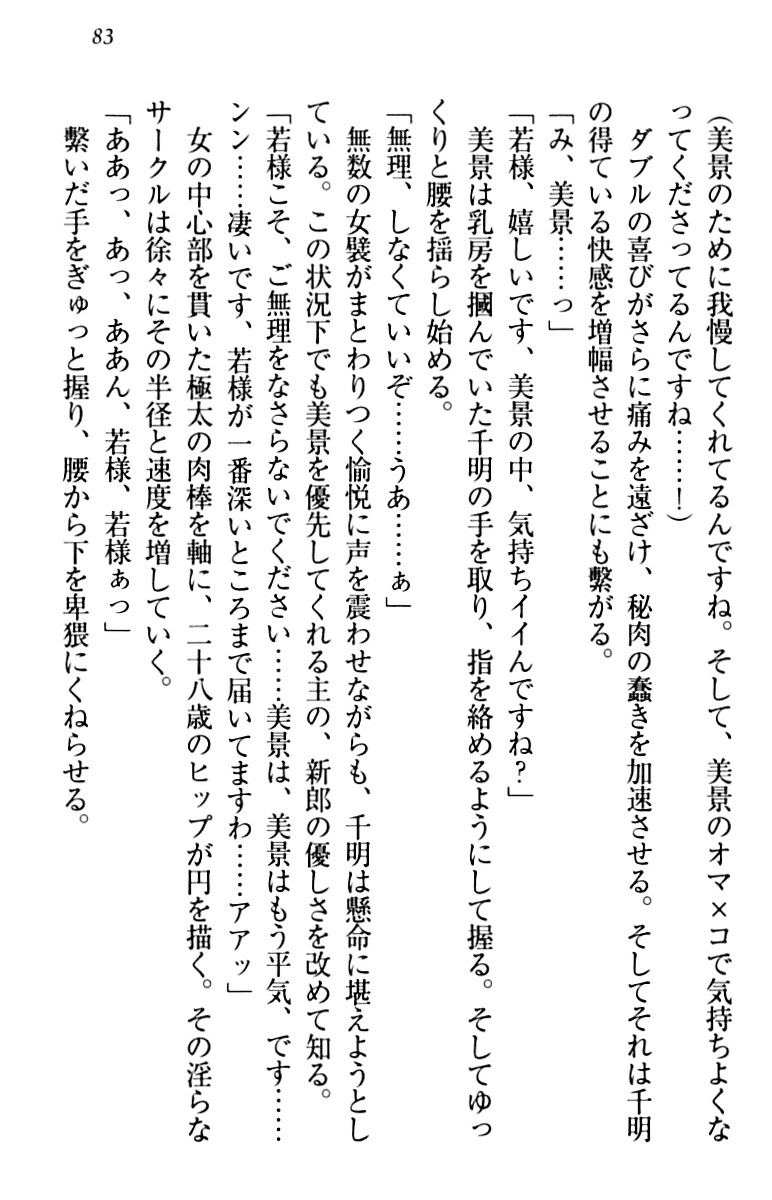 83
(美景のために我慢してくれてるんですね。そして、美景のオマ×コで気持ちよくな
ってくださってるんですね……!)
ダブルの喜びがさらに痛みを遠ざけ、秘肉の蠢きを加速させる。そしてそれは千明
の得ている快感を増幅させることにも繋がる。
「み、美景……っ」
「若様、嬉しいです、美景の中、気持ちイイんですね?」
美景は乳房を摑んでいた千明の手を取り、指を絡めるようにして握る。そしてゆっ
くりと腰を揺らし始める。
「無理、しなくていいぞ……うあ……ぁ」
無数の女襞がまとわりつく愉悦に声を震わせながらも、千明は懸命に堪えようとし
ている。この状況下でも美景を優先してくれる主の、新郎の優しさを改めて知る。
「若様こそ、ご無理をなさらないでください……美景は、美景はもう平気、です……
ンン……凄いです、若様が一番深いところまで届いてますわ……アアッ」
女の中心部を貫いた極太の肉棒を軸に、二十八歳のヒップが円を描く。その淫らな
サークルは徐々にその半径と速度を増していく。
「ああっ、あっ、ああん、若様、若様ぁっ」
繋いだ手をぎゅっと握り、腰から下を卑猥にくねらせる。